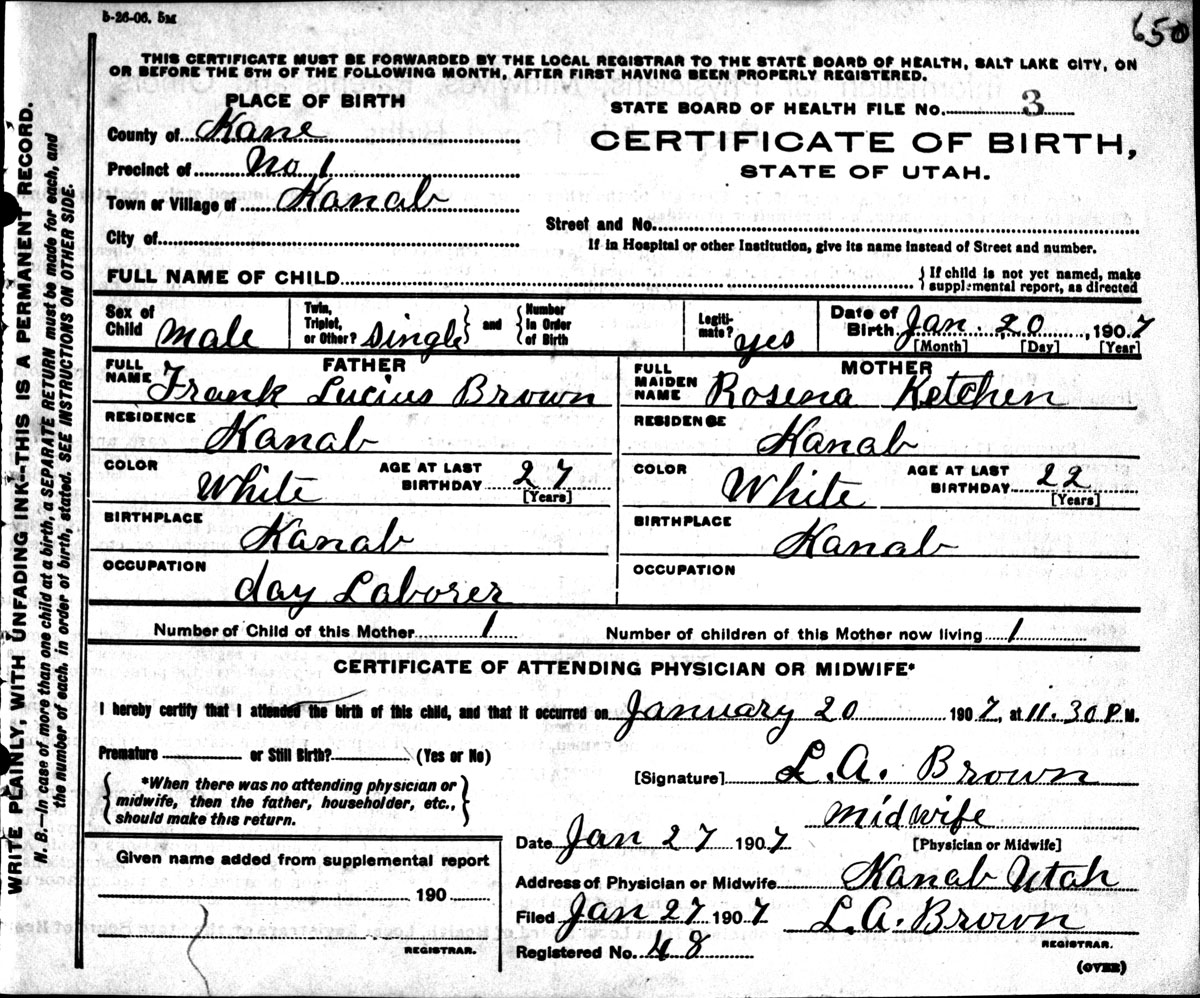 5-26-06. 5M
650
THIS CERTIFICATE MUST BE FORWARDED BY THE LOCAL REGISTRAR TO THE STATE BOARD OF HEALTH, SALT LAKE CITY, ON
OR BEFORE THE 5TH OF THE FOLLOWING MONTH, AFTER FIRST HAVING BEEN PROPERLY REGISTERED.
PLACE OF BIRTH
County of Kane
Precinct of No 1
Town or Village of Kanab
City of
STATE BOARD OF HEALTH FILE No. 3
CERTIFICATE OF BIRTH,
STATE OF UTAH.
Street and No.
If in Hospital or other Institution, give its name instead of Street and number.
FULL NAME OF CHILD
{ If child is not yet named, make
supplemental report, as directed
Sex of Child Male
Twin, Triplet, or Other? Single } and { Number in Order of Birth
Legitimate? yes
Date of Birth Jan. 20, 1907
[Month] [Day] [Year]
FATHER
FULL NAME Frank Lucius Brown
RESIDENCE Kanab
COLOR White AGE AT LAST BIRTHDAY 27
[Years]
BIRTHPLACE
Kanab
OCCUPATION
day Laborer
MOTHER
FULL MAIDEN NAME Rosena Ketchen
RESIDENCE Kanab
COLOR White AGE AT LAST BIRTHDAY 22
[Years]
BIRTHPLACE
Kanab
OCCUPATION
Number of Child of this Mother 1 Number of children of this Mother now living 1
CERTIFICATE OF ATTENDING PHYSICIAN OR MIDWIFE*
I hereby certify that I attended the birth of this child, and that it occurred on January 20 1907, at 11.30 P.M.
Premature or Still Birth? (Yes or No)
{ *When there was no attending physician or
midwife, then the father, householder, etc.,
should make this return. }
[Signature] L.A. Brown
midwife
[Physician or Midwife]
Date Jan 27 1907
Address of Physician or Midwife Kanab Utah
Filed Jan 27 1907 L.A. Brown
REGISTRAR.
Registered No. 48
(OVER)
Given name added from supplemental report
190
REGISTRAR.
WRITE PLAINLY, WITH UNFADING INK--THIS IS A PERMANENT RECORD.
N.B.--In case of more than one child at a birth, a SEPARATE RETURN must be made for each, and
the number of each, in order of birth, stated. SEE INSTRUCTIONS ON OTHER SIDE.